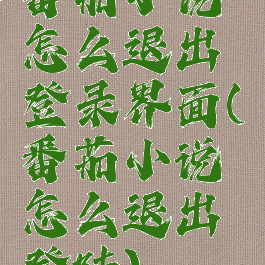 番茄小说
怎么退出
登录界面(
番茄小说
怎么退出
登陆)